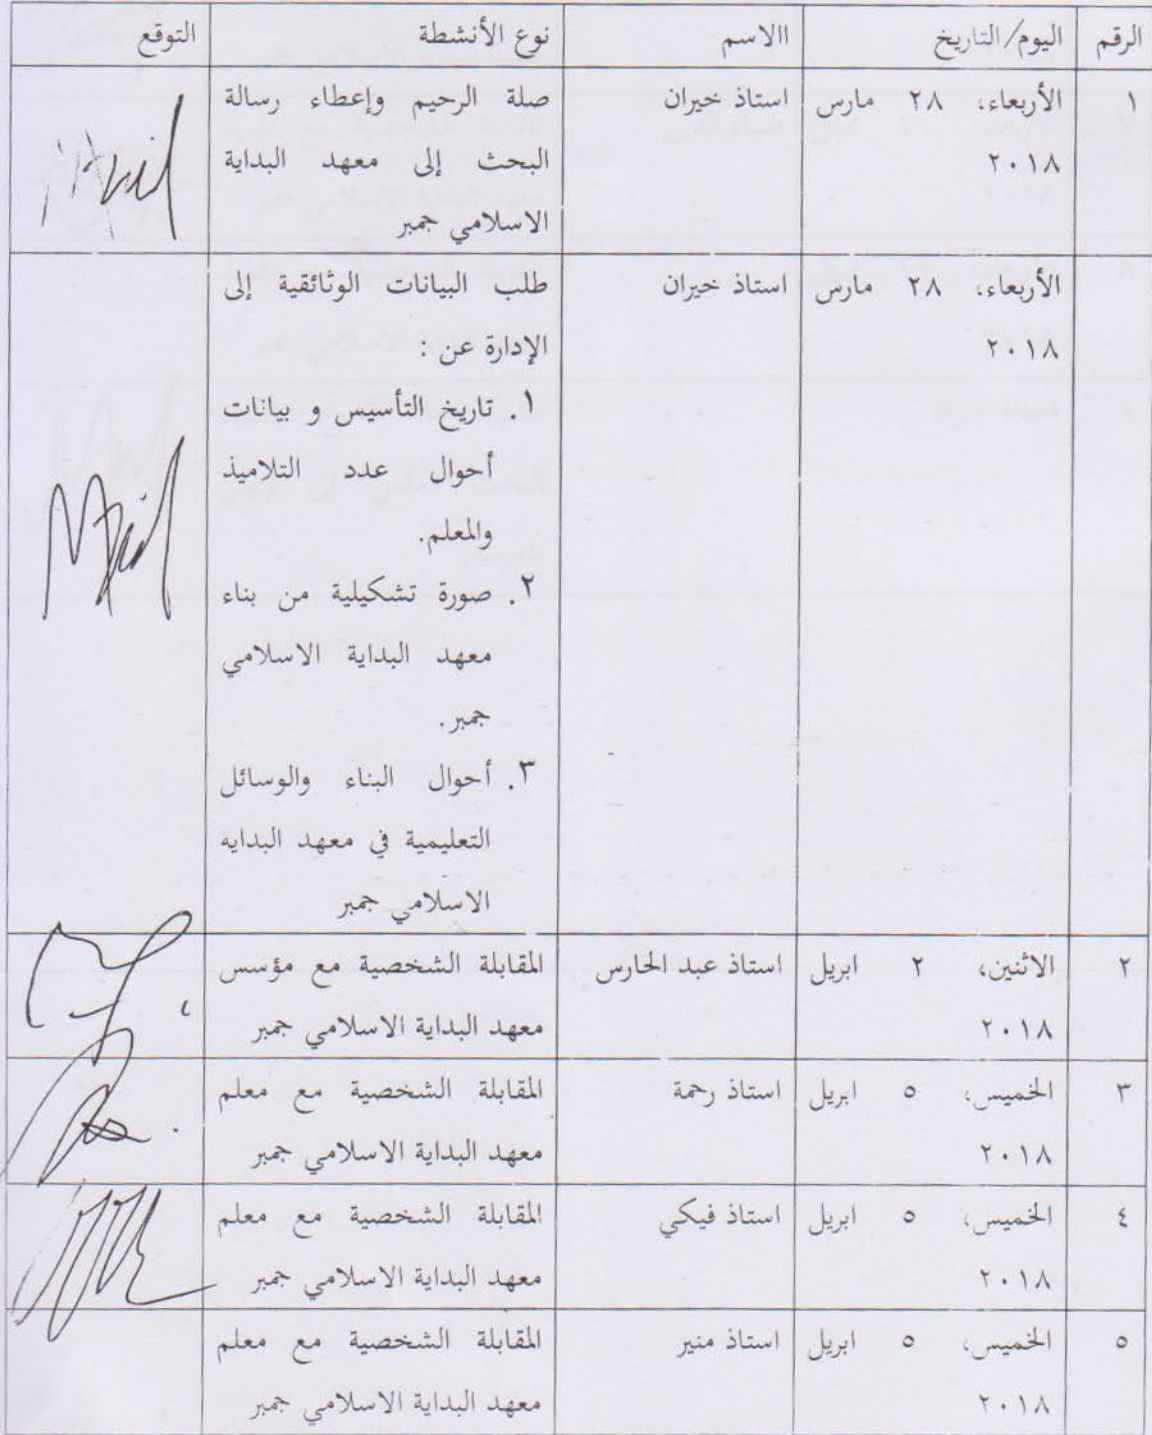 الرقم اليوم/التاريخ االاسم نوع الأنشطة التوقع
١ الأربعاء، ٢٨ مارس استاذ خيران صلة الرحيم وإعطاء رسالة
٢٠١٨ البحث إلى معهد البداية
الاسلامي جمبر
الأربعاء، ٢٨ مارس استاذ خيران طلب البيانات الوثائقية إلى
٢٠١٨ الإدارة عن :
١. تاريخ التأسيس و بيانات
أحوال عدد التلاميذ
والمعلم.
٢. صورة تشكيلية من بناء
معهد البداية الاسلامي
جمبر.
٣. أحوال البناء والوسائل
التعليمية في معهد البدايه
الاسلامي جمبر
٢ الاثنين، ٢ ابريل استاذ عبد الحارس المقابلة الشخصية مع مؤسس
٢٠١٨ معهد البداية الاسلامي جمبر
٣ الخميس، ٥ ابريل استاذ رحمة المقابلة الشخصية مع معلم
٢٠١٨ معهد البداية الاسلامي جمبر
٤ الخميس، ٥ ابريل استاذ فيكي المقابلة الشخصية مع معلم
٢٠١٨ معهد البداية الاسلامي جمبر
٥ الخميس، ٥ ابريل استاذ منير المقابلة الشخصية مع معلم
٢٠١٨ معهد البداية الاسلامي جمبر